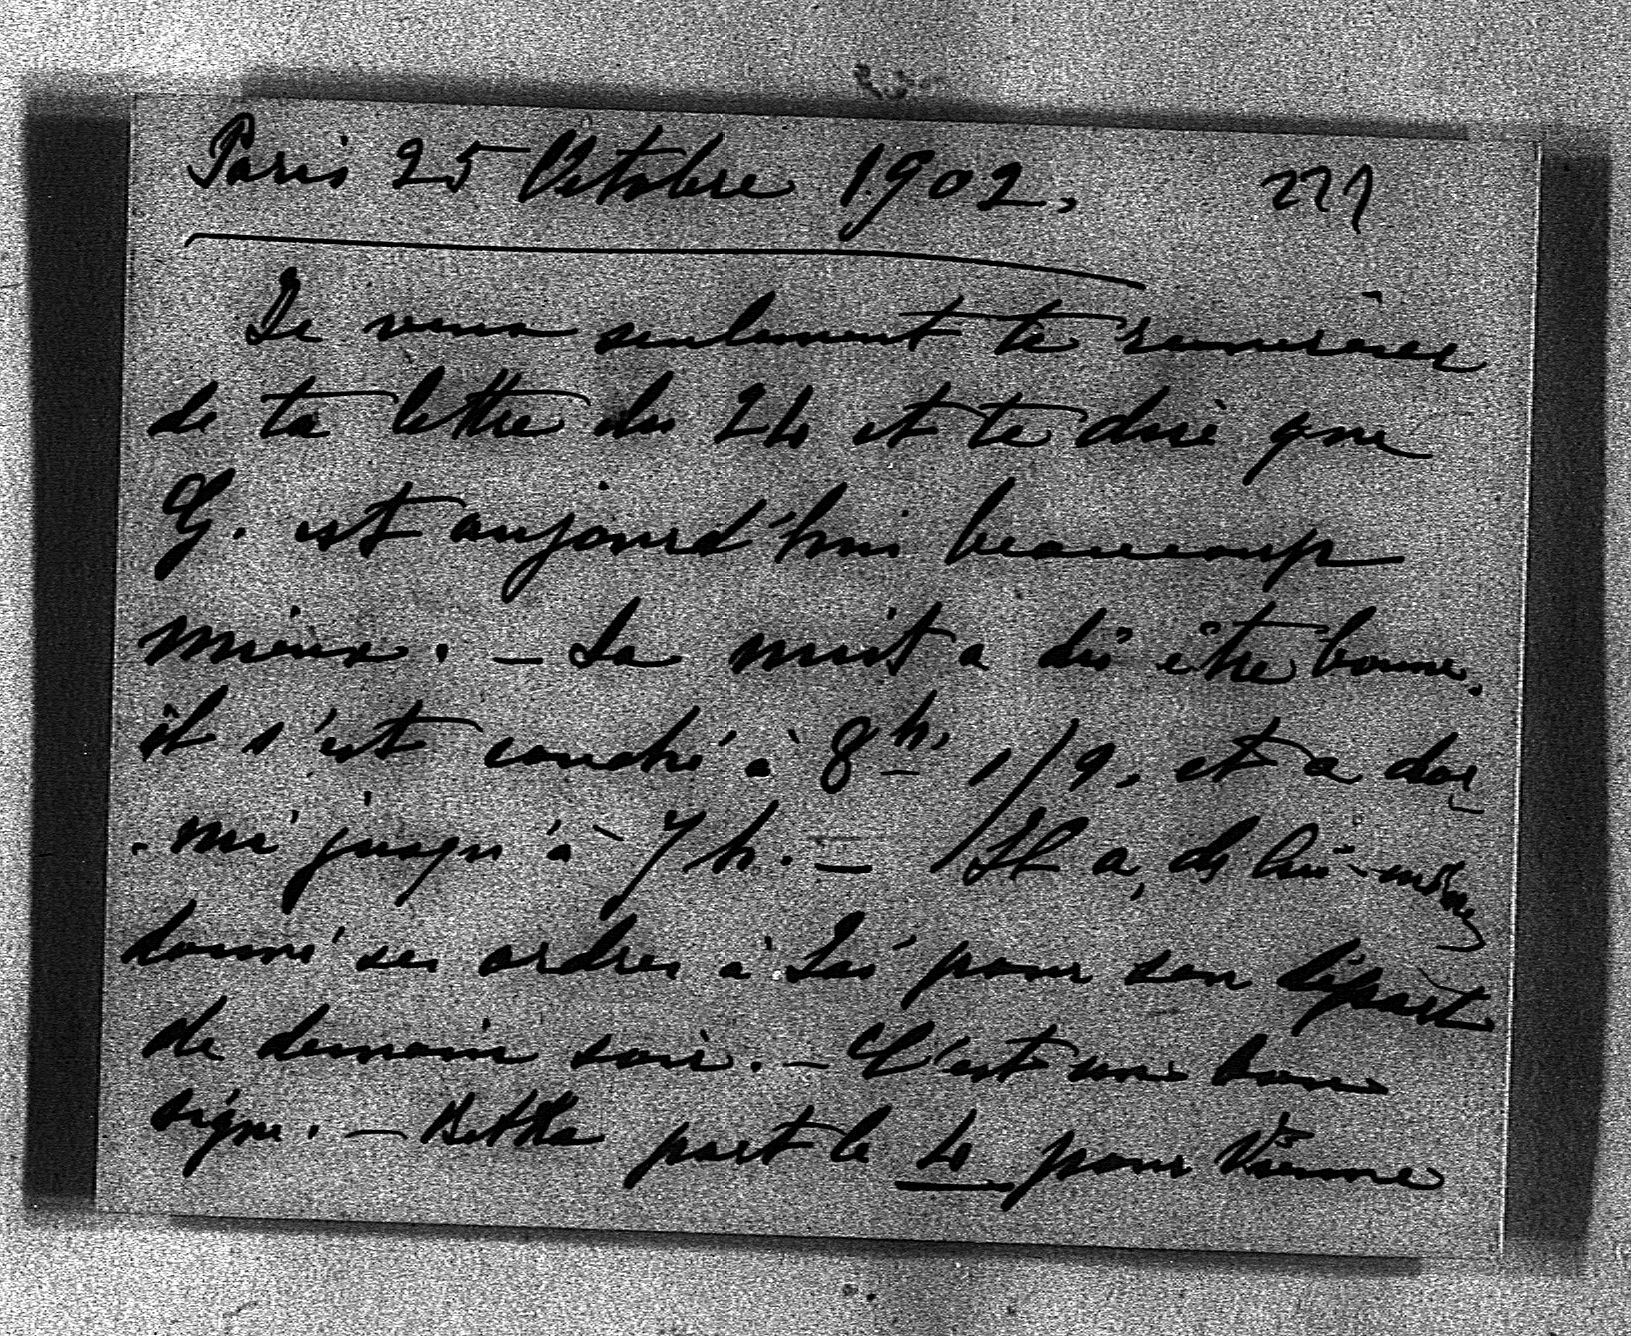 Paris 25 Octobre 1902.
Je veux seulement te remercier
de ta lettre du 24 et te dire que
G. est aujourd'hui beaucoup
mieux. – La nuit a dû être bonne.
il s'est couché à 8h. 1/2, et a dor
- mi jusqu'à 7 h. – Il a, de lui-même
donné ses ordres à pour son départ
de demain soir. – C'est un bon
signe. – part le 4 pour Vienne